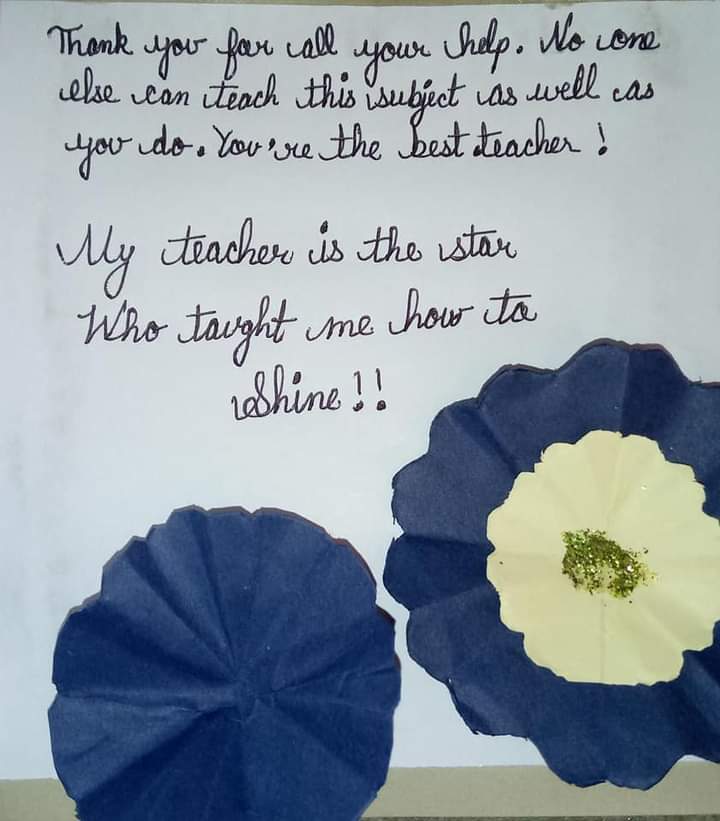 Thank you for all your help. No one
else can teach this subject as well as
you do. You're the best teacher !
My teacher is the star
Who taught me how to
Shine !!